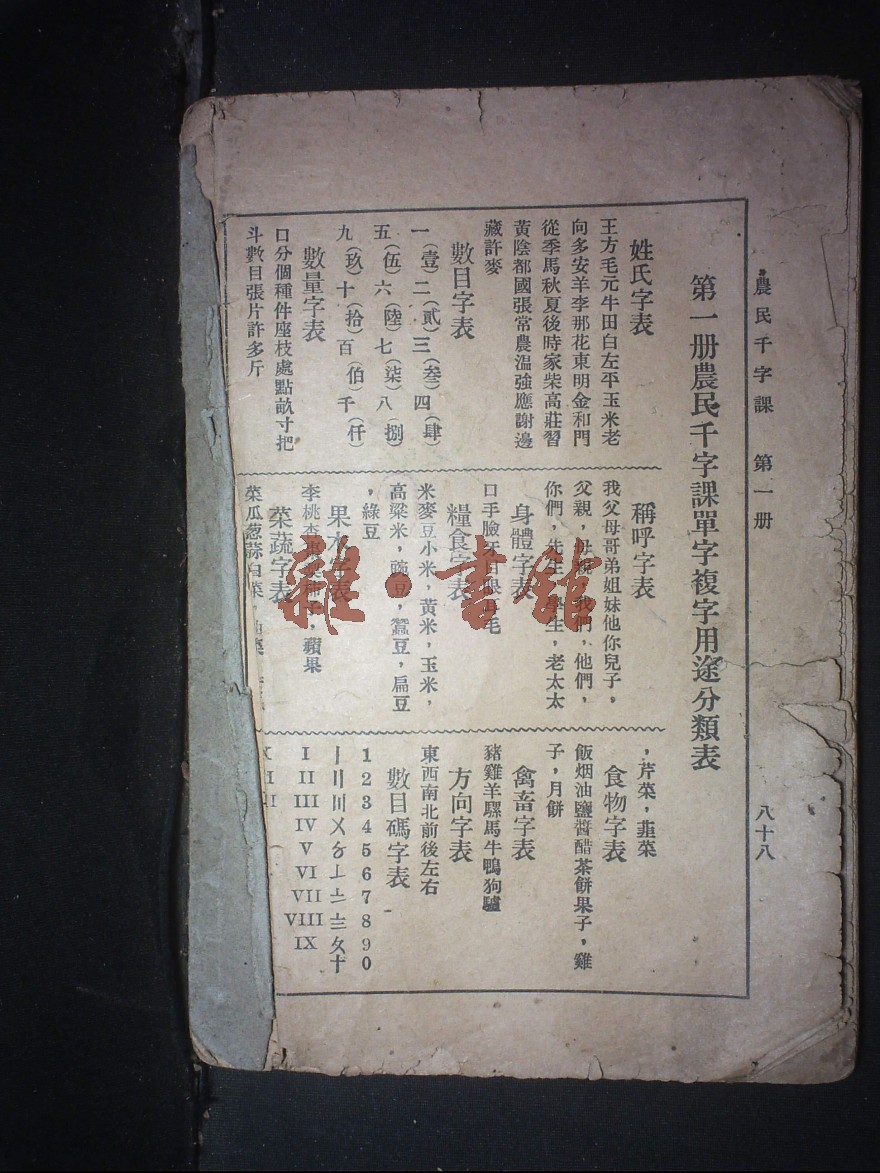 農民千字課 第一册 八十八
第一册農民千字課單字複字用途分類表
姓氏字表
王方毛元牛田白左平玉米老
向多安羊李那花東明金和門
從季馬秋夏後時家柴高莊習
黃陰都國張常農溫強應謝邊
藏許麥
數目字表
一(壹)二(貳)三(叁)四(肆
五(伍)六(陸)七(柒)八(捌
九(玖)十(拾)百(伯)千(仟
數量字表
口分個種件座枝處點畝寸把
斗數目張片許多斤
稱呼字表
我父母哥弟姐妹他你兒子，
父親，母親，我們，他們，
你們，先生，學生，老太太
身體字表
口手臉牙耳眼鼻毛
糧食字表
米麥豆小米，黃米，玉米，
高粱米，豌豆，蠶豆，扁豆
，綠豆
果木字表
李桃杏，蘋果
菜蔬字表
菜瓜葱蒜白菜，
，芹菜，韭菜
食物字表
飯烟油鹽醬醋茶餅果子，雞
子，月餅
禽畜字表
豬雞羊騾馬牛鴨狗驢
方向字表
東西南北前後左右
數目碼字表
1 2 3 4 5 6 7 8 9 0
〡〢〣〤〥〦〧〨〩十
I II III IV V VI VII VIII IX
雜·書館